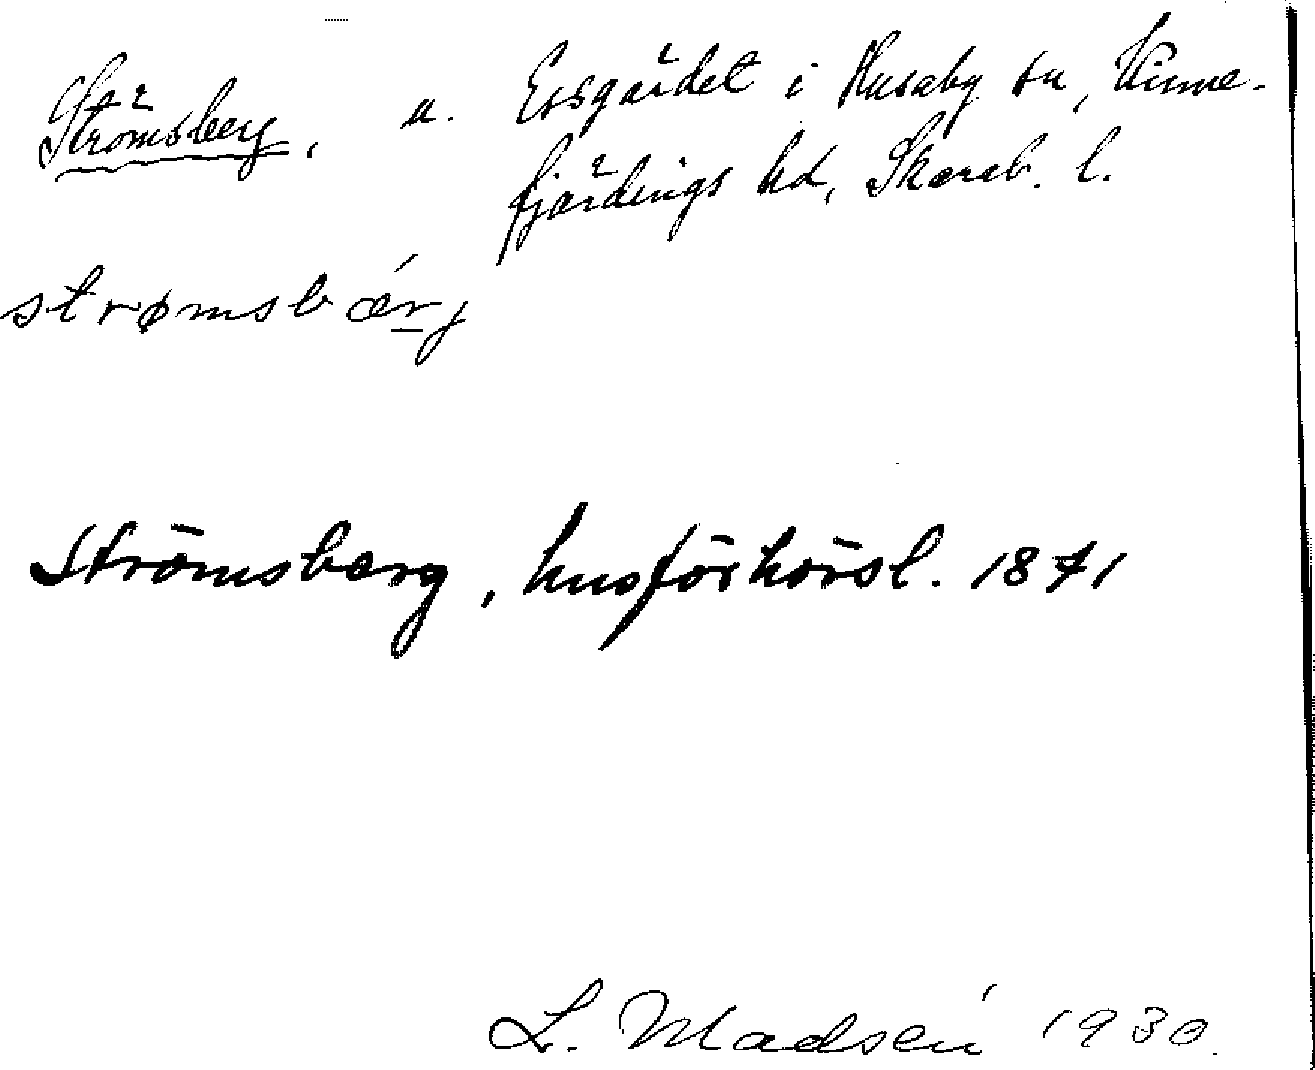 Strömsberg, u. Essgärdet i Husaby sn, Kinne-
fjärdings hd, Skarab. l.
strømsbǽrj
Strömsberg, husförhörsl. 1871
L. Madsén 1930.